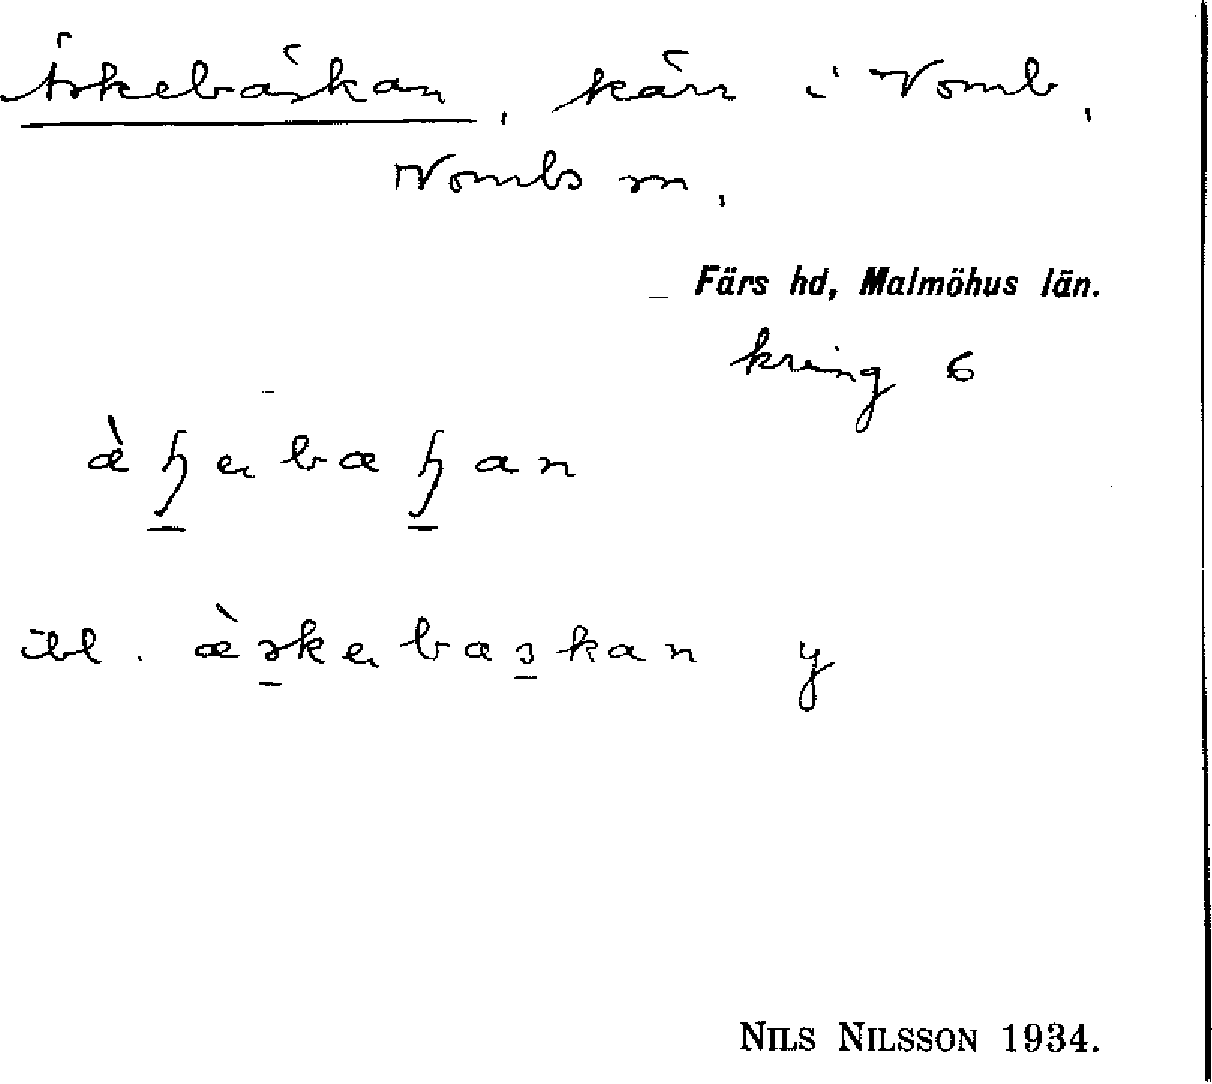 Äskebäskan, kärr i Vomb,
Vombs sn,
Färs hd, Malmöhus län.
kring 6
ibl. y
NILS NILSSON 1934.